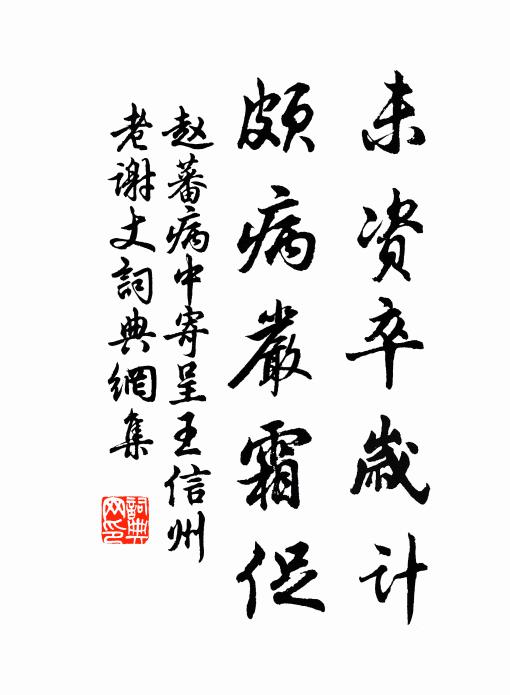 未资卒歲计
颇病嚴霜促
赵蕃病中寄呈王信州
老谢丈詞典網集
詞典網印